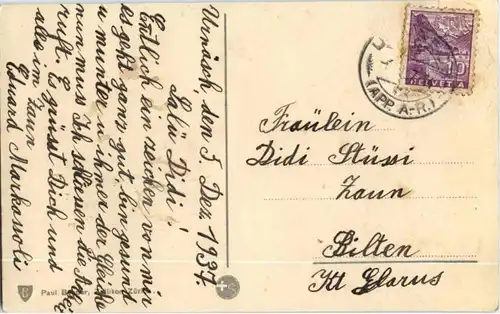 Urnäsch, den 5. Dez. 1934.
Salü Didi!
Entlich ein zeichen von mir
es geht ganz gut, bin gesund
u munter u immer der Gleiche
nun muss Ich schliessen die
ruft. Es grüsst Dich und
alle im Zaun
Eduard Markassoli
Fräulein
Didi Stüssi
Zaun
Bilten
Kt Glarus
(APP. A-R.)
10
HELVETIA
Paul